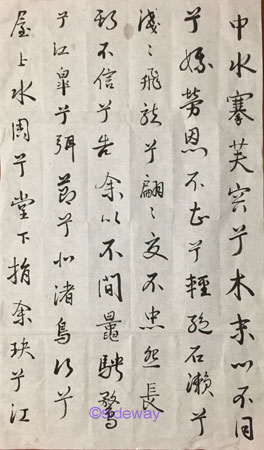 中水搴芙容兮木末心不同
兮媒勞恩不甚兮輕絕石瀨兮
淺〻飛龍兮翩〻交不忠怨長
期不信兮告余以不間鼂騁騖
兮江皋兮弭節兮北渚鳥次兮
屋上水周兮堂下捐余玦兮江
©sideway